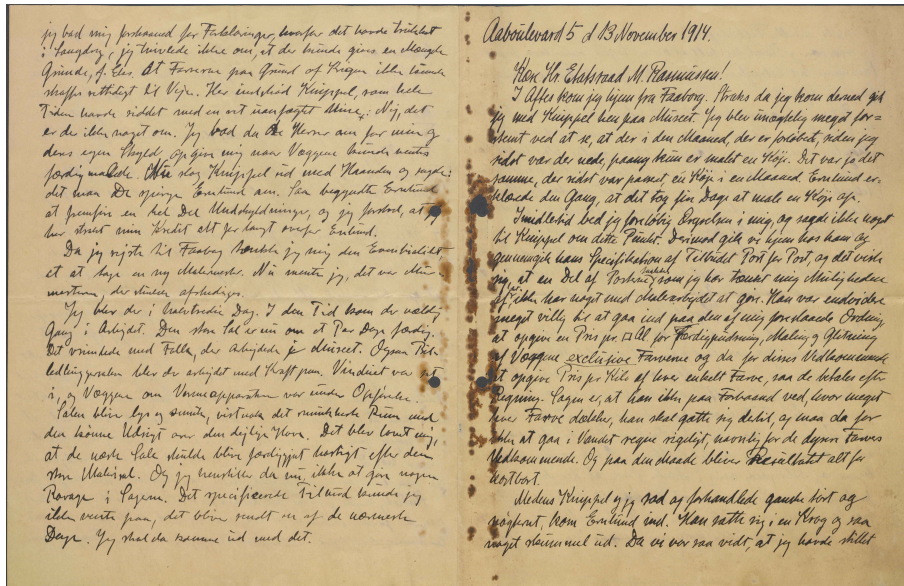 jeg bad mig forskaaned for Forklaringer, hvorfor det havde trukket
i Langdrag, jeg tvivlede ikke om, at der kunde gives en Mængde
Grunde, f. Eks. at Farverne paa Grund af Krigen ikke kunde
skaffes rettidigt til Veje. Her indskød Knippel, som hele
Tiden havde siddet med en ret Mine,: Nej, det
er der ikke noget om. Jeg bad da de Herrer om for min og
deres egen Skyld, opgive mig naar Væggene kunde ventes
færdigmalede. slog Knippel ud med Haanden og sagde:
det maa De spørge Ernlund om. Saa begyndte Ernlund
at fremføre en hel Del Undskyldninger, og jeg forstod, at jeg
har strakt min Kredit alt for langt overfor Ernlund.
Da jeg rejste til Faaborg tænkte jeg mig den Eventualitet
at tage en ny Malermester. Nu mente jeg, det var Mur-
mesteren, der skulde afskediges.
Jeg blev der i halvtredie Dag. I den Tid kom der vældig
Gang i Arbejdet. Den store Sal er nu om et Par Dage færdig.
Det vrimlede med Folk, der arbejdede i Museet. Ogsaa paa Til-
bledningerne blev der arbejdet med Kraft paa. Vinduet var sat
i, og Væggene om Varmeapparatet var under Opførelse.
Salen bliver lys og smuk, virkende det rum med
den skønne Udsigt over den dejlige Have. Det blev lovet mig,
at de næste Sale skulde blive færdiggjort hurtigt efter den
store Malesal. Og jeg henstiller da nu, ikke at gøre nogen
i Sagen. Det specificerede Tilbud kunde jeg
ikke vente paa, det bliver sendt en af de nærmeste
Dage. Jeg skal da komme ud med det.
Aaboulevard 5 d 13 November 1914.
Kære Hr. Etatsraad M. Rasmussen!
I Aftes kom jeg hjem fra Faaborg. Straks da jeg kom derned gik
jeg med Knippel hen paa Museet. Jeg blev umaadelig meget for-
stemt ved at se, at der i den Maaned, der er forløbet, siden jeg
sidst var der nede, paany kun er malet en Køje. Det var jo det
samme, der sidst var passeret, en Køje i en Maaned. Ernlund er-
klærede den Gang, at det tog fire Dage at male en Køje op.
Imidlertid bed jeg foreløbig Ærgrelsen i mig, og sagde ikke noget
til Knippel om dette Punkt. Derimod gik vi hjem hos ham og
gennemgik hans Specifikation af Tilbudet Post for Post, og det viste
sig, at en Del af Posterne, som jeg har tænkt mig Muligheden
af, ikke har noget med Malerarbejdet at gøre. Han var endvidere
meget villig til at gaa ind paa den af mig foreslaaede Ordning
at opgive en Pris pr. □ Al for Færdigpudsning, Maling og Glitning
af Væggene exclusive Farverne og da for disses Vedkommende
at opgive Pris pr Kilo af hver enkelt Farve, saa de betales efter
Regning. Sagen er, at han ikke paa Forhaand ved, hvor meget
hver Farve dækker, han skal gætte sig dertil, og maa da for
ikke at gaa i Vandet regne rigeligt, navnlig for de dyrere Farvers
Vedkommende. Og paa den Maade bliver Resultatet alt for
kostbart.
Medens Knippel og jeg sad og forhandlede ganske tørt og
nøgternt, kom Ernlund ind. Han satte sig i en Krog og saa
noget ud. Da vi var saa vidt, at jeg havde stillet